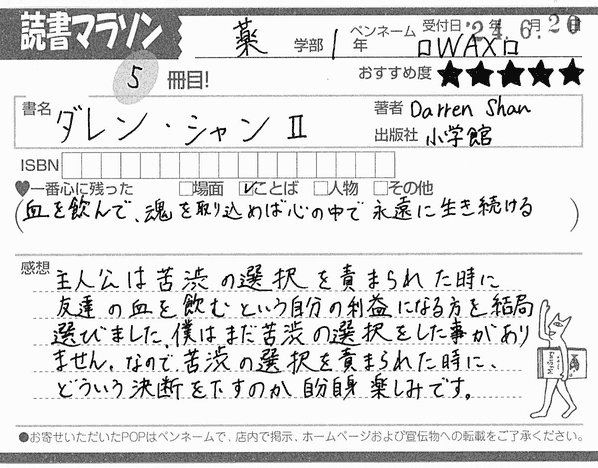 読書マラソン
薬 学部 1年 ペンネーム □WAX□ 受付日 '24年6月20日
5 冊目! おすすめ度 ★★★★★
書名 ダレン・シャンⅡ
著者 Darren Shan
出版社 小学館
ISBN
♥一番心に残った □場面 ☑ことば □人物 □その他
(血を飲んで、魂を取り込めば心の中で永遠に生き続ける)
感想
主人公は苦渋の選択を責まられた時に
友達の血を飲むという自分の利益になる方を結局
選びました。僕はまだ苦渋の選択をした事があり
ません。なので、苦渋の選択を責まられた時に、
どういう決断を下すのか自分自身楽しみです。
●お寄せいただいたPOPはペンネームで、店内で掲示、ホームページおよび宣伝物への転載をご了承ください。